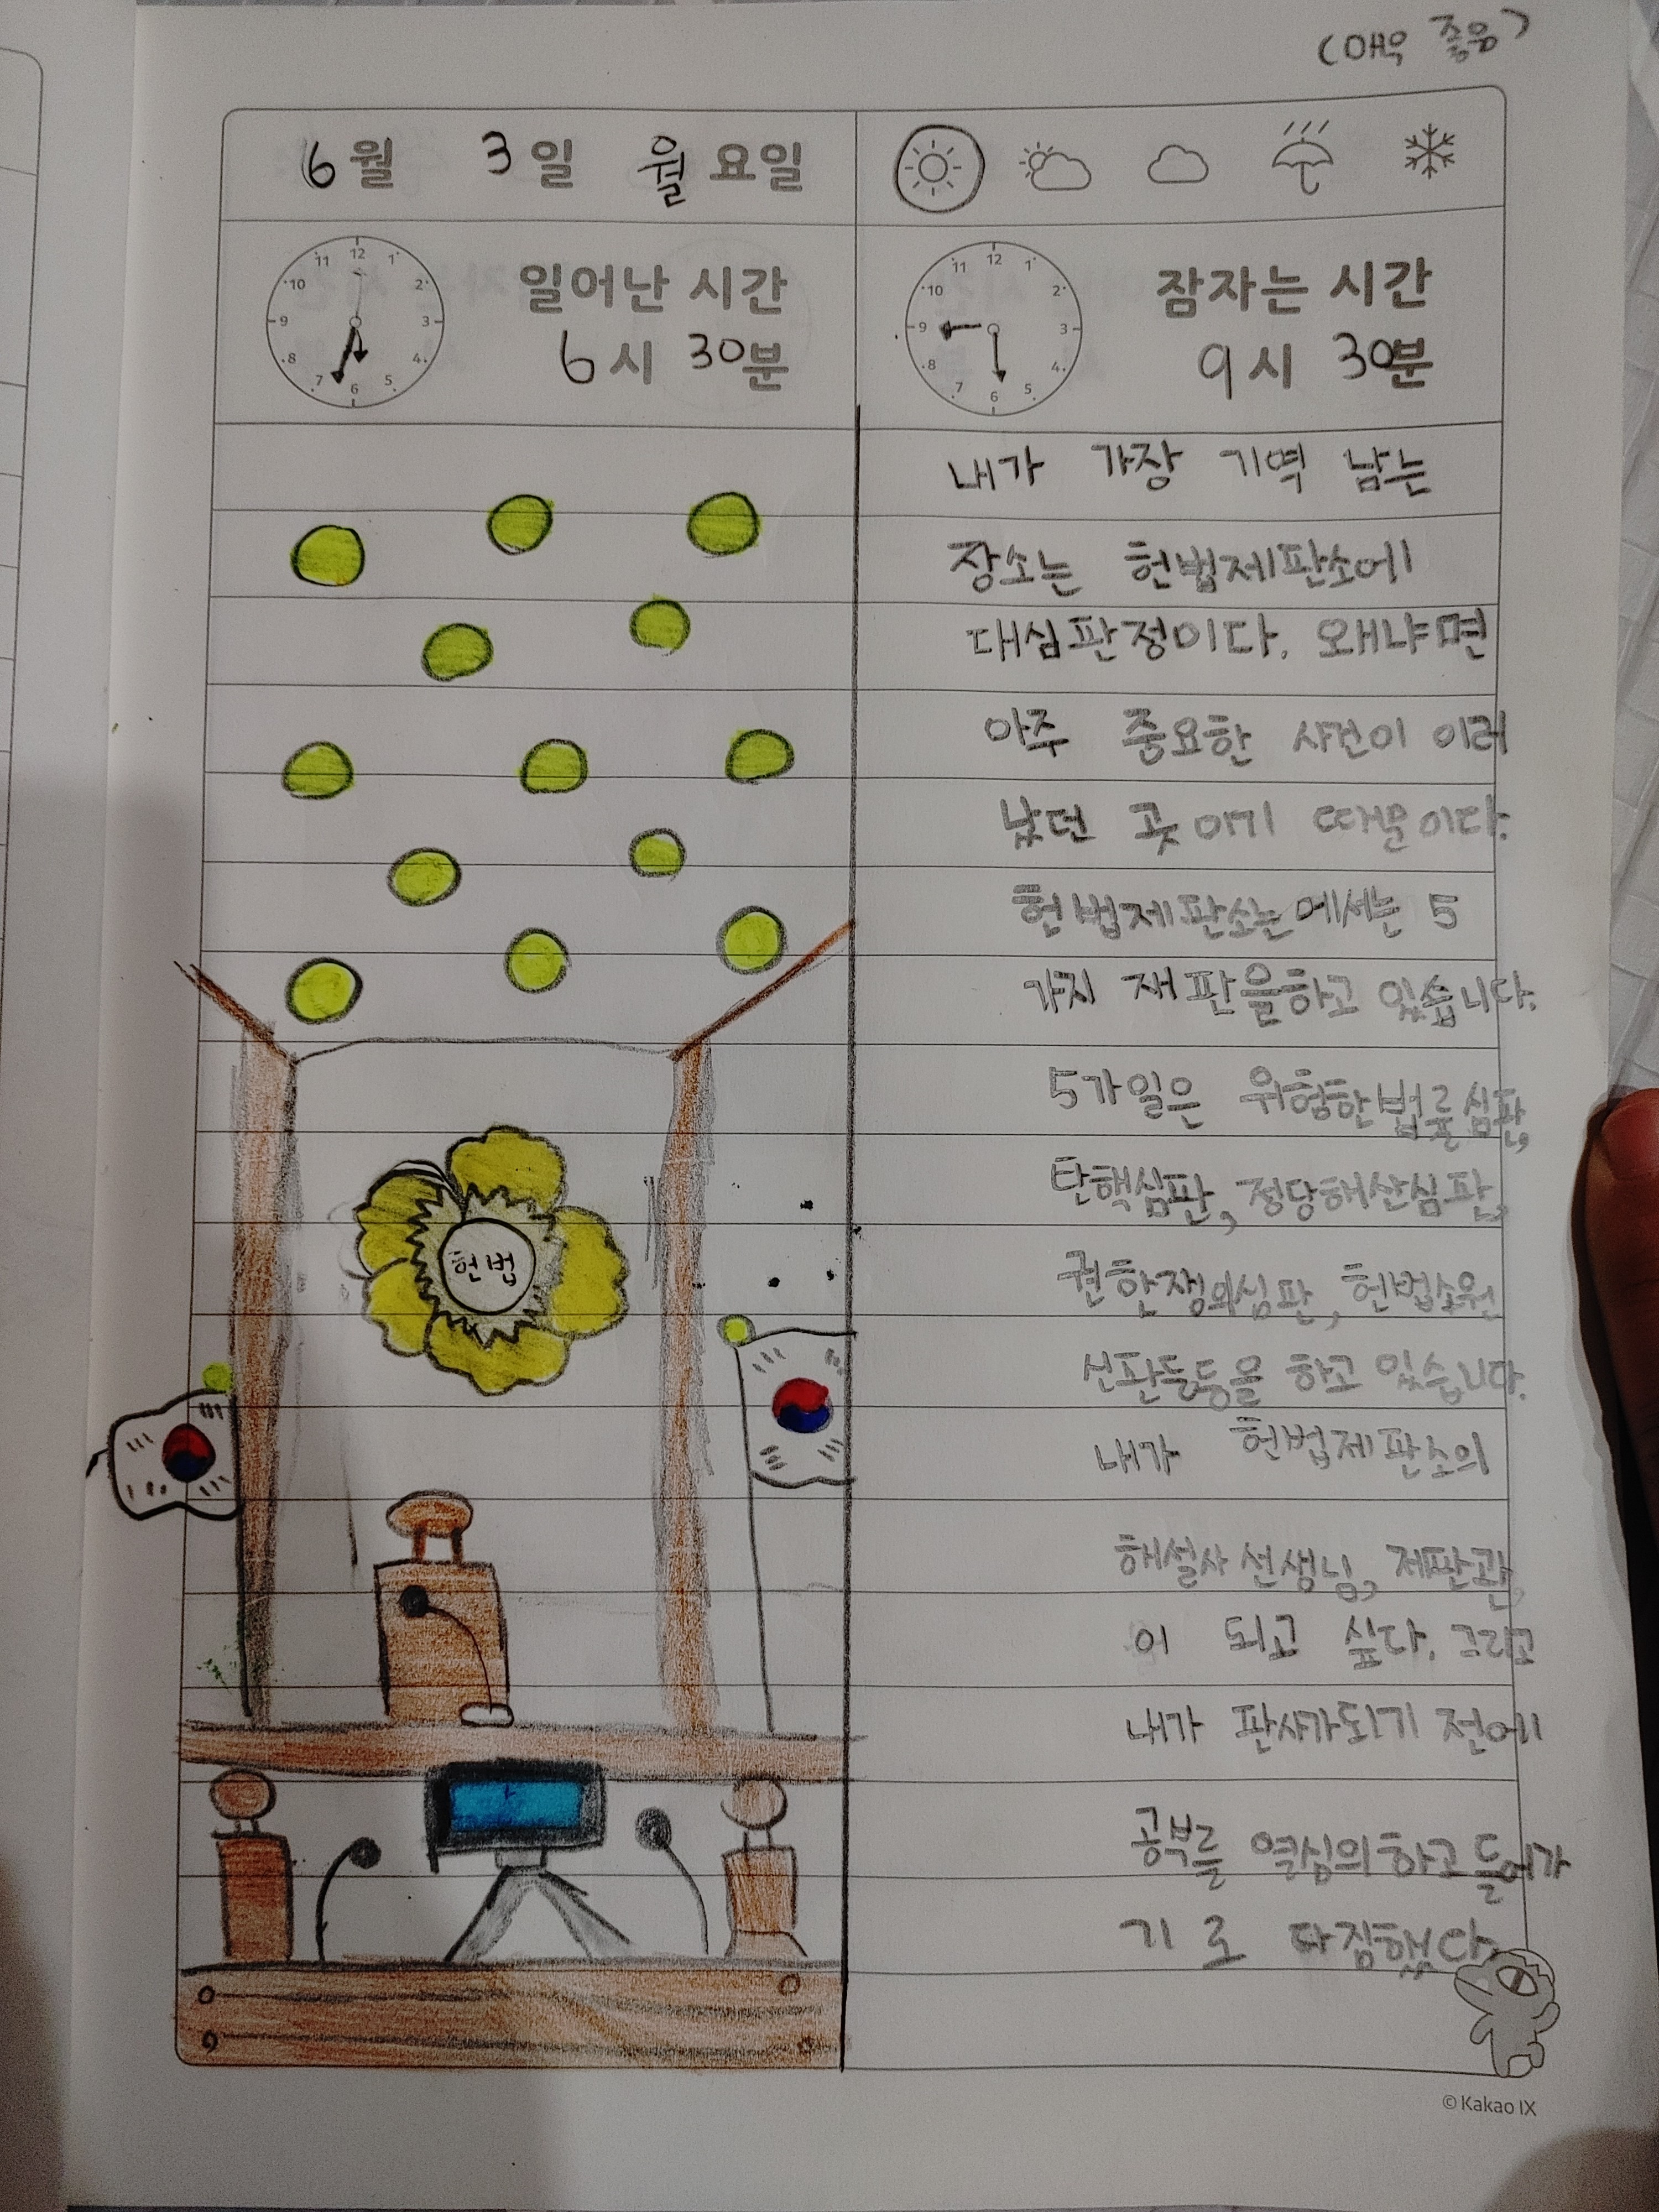 (매우 좋음)
6월 3일 월요일
일어난 시간
6시 30분
잠자는 시간
9시 30분
내가 가장 기역 남는
장소는 헌법제판소에
대심판정이다. 왜냐면
아주 중요한 사건이 이러
났던 곳이기 때문이다.
헌법제판소는에서는 5
가지 재판을하고 있습니다.
5가일은 위험한법률심판,
탄핵심판, 정당해산심판,
권한쟁의심판, 헌법소원
선판들등을 하고 있습니다.
내가 헌법제판소의
해설사 선생님, 제판관,
이 되고 싶다. 그리고
내가 판사가되기 전에
공부를 열심의하고 들어가
기로 다짐했다.
헌법
© Kakao IX